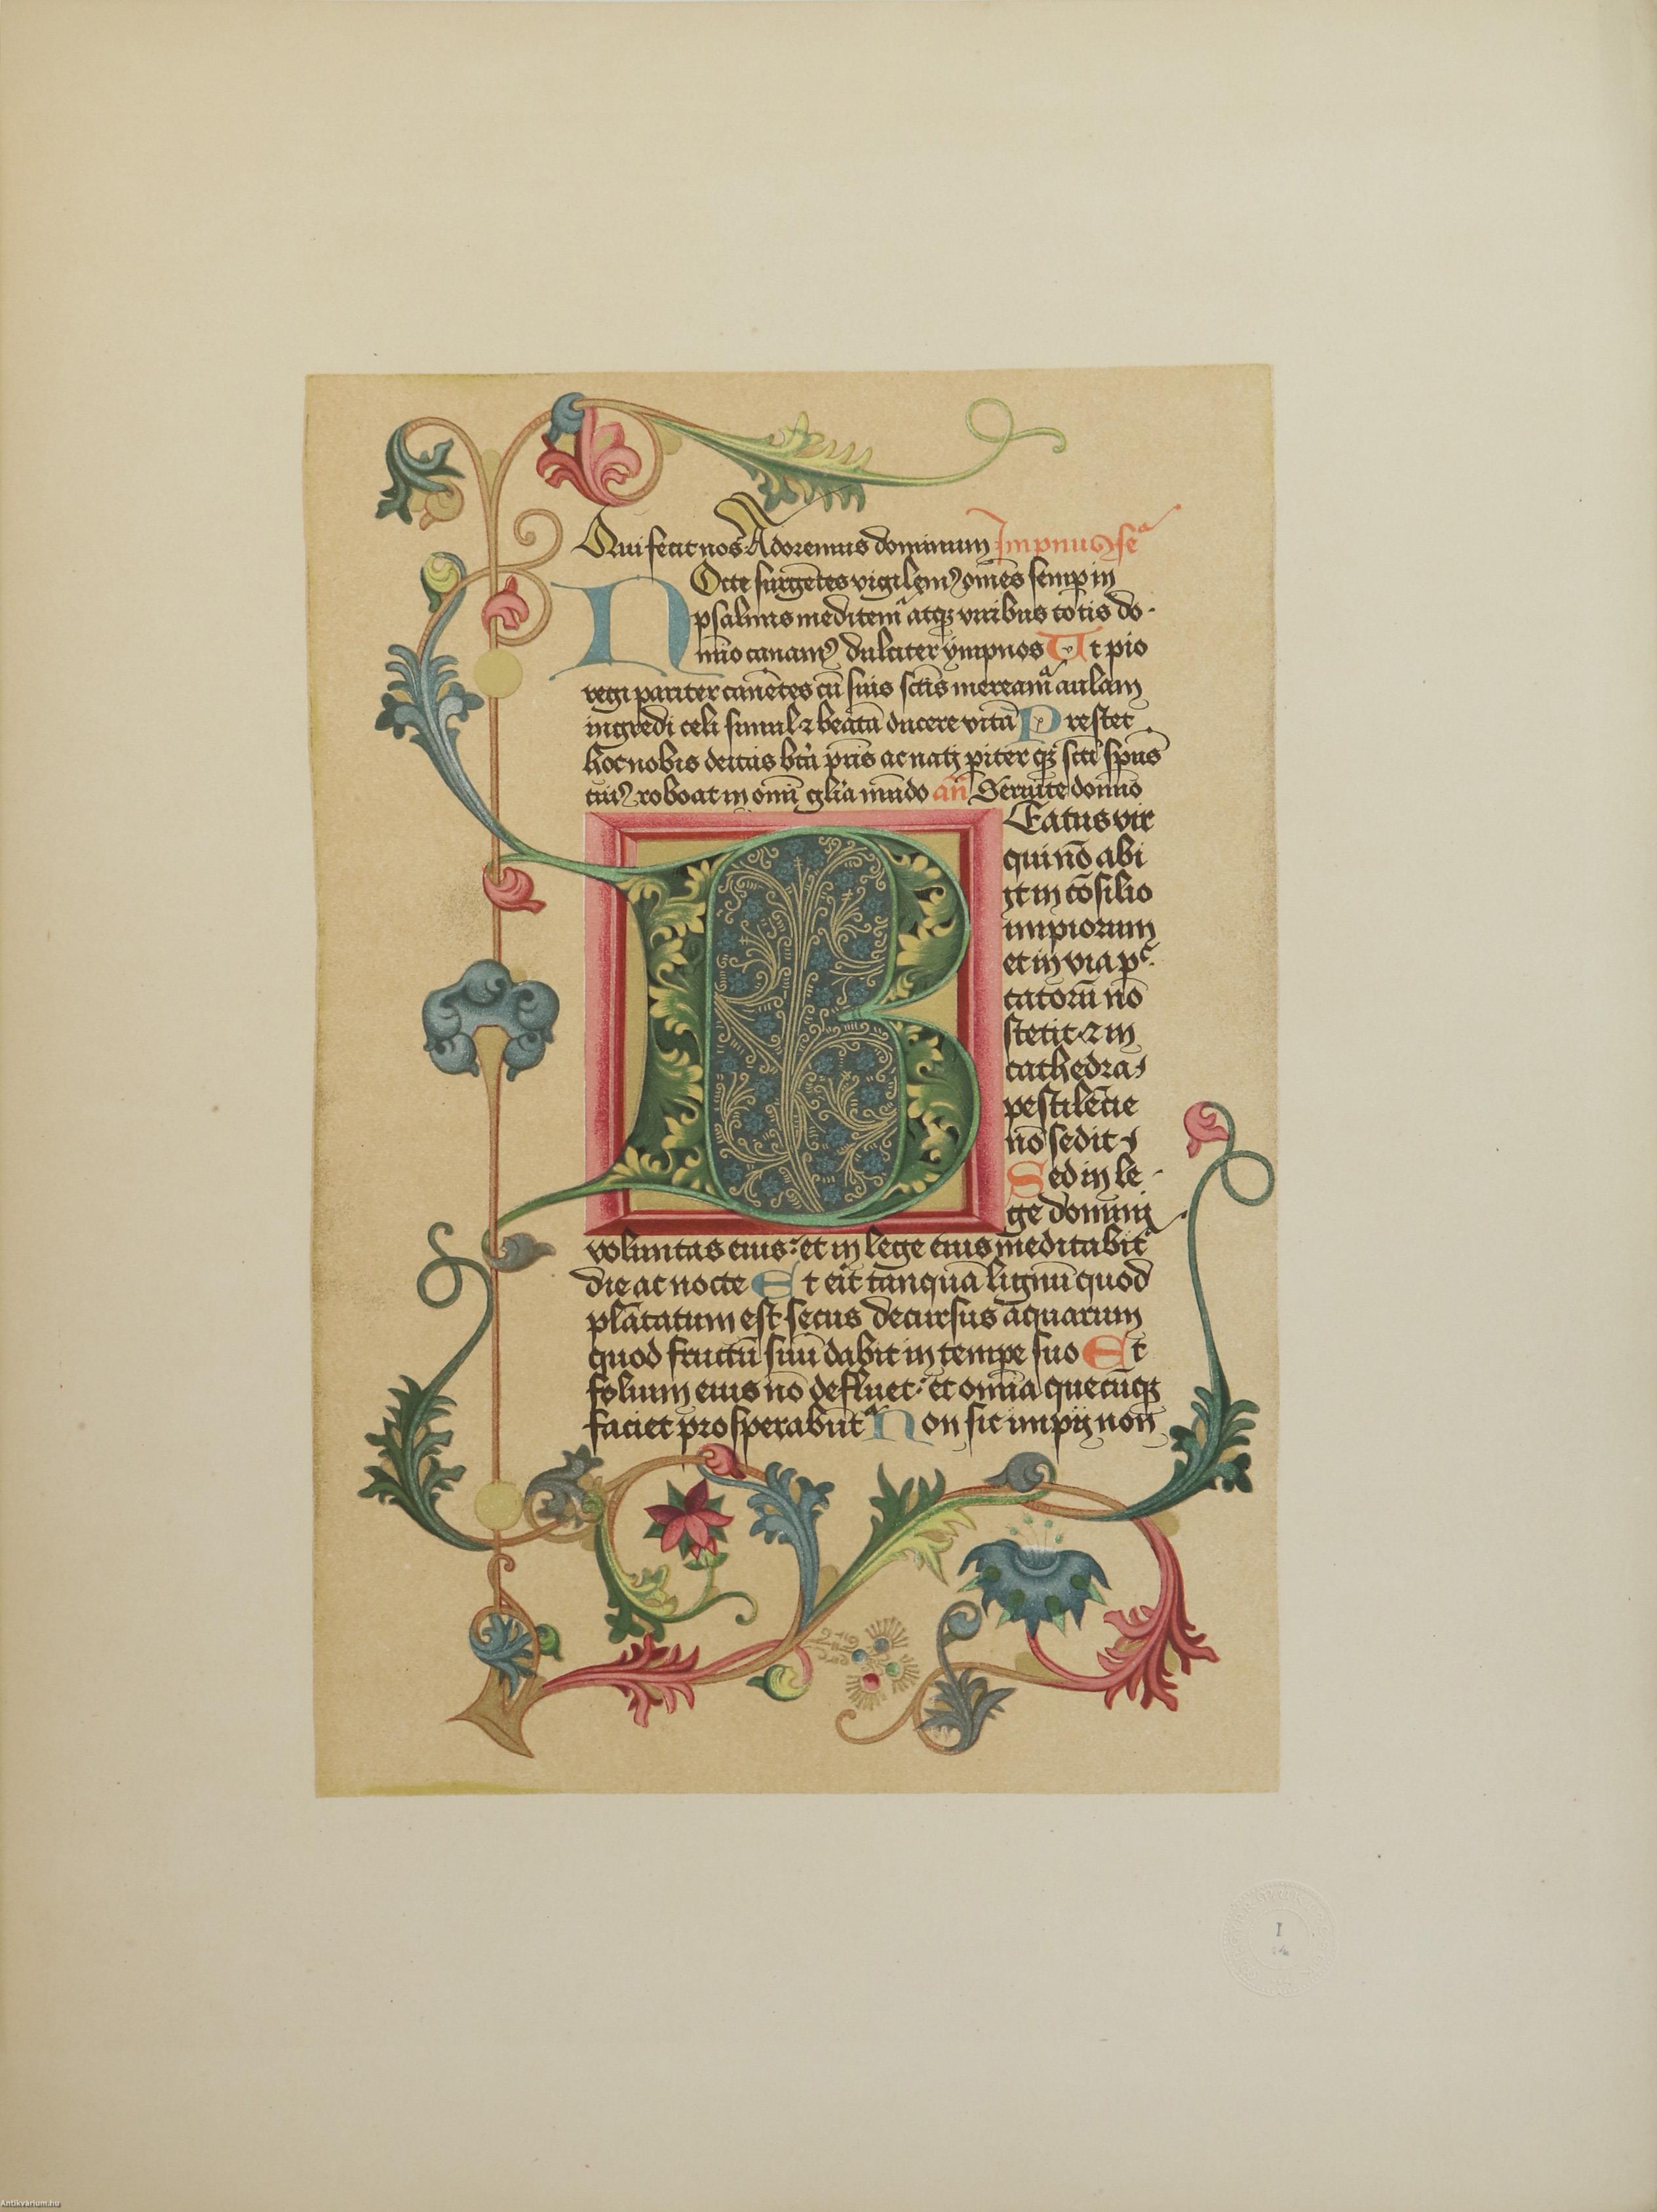 Qui fecit nos Adoremus dominum Impnus fe
Nocte surgētes vigilem⁹ om̄es semp in
psalmis meditem atqꝫ viribus totis do-
mīo canam⁹ dulciter ympnos Ut pio
regi pariter canētes cū suis sctīs mereamᷓ aulam
ingredi celi simul ⁊ beatā ducere vitā Prestet
hoc nobis deitas btā pris ac natꝫ piterqꝫ sctī spūs
cui⁹ roboat in omī gl̄ia mūdo an̄ Seruite domīo
BEatus vir
qui nō abi
jt in cōsilio
impiorum
et in via pc-
catorū nō
stetit ⁊ in
cathedra
pestilēcie
nō sedit
Sed in le-
ge domini
voluntas eius: et in lege eius meditabitᷓ
die ac nocte Et erit tanquā lignū quod
plātatum est secus decursus aquarum
quod fructū suū dabit in tempe suo Et
folium eius nō defluet: et omīa quecūqꝫ
faciet prosperabūtᷓ Non sic impij non
I
Antikvárium.hu